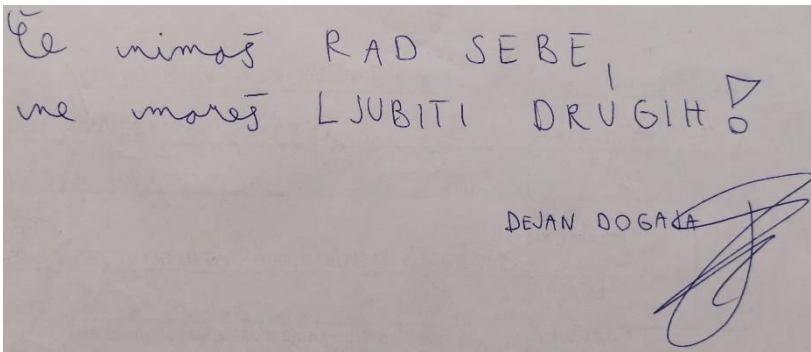 Če nimaš RAD SEBE,
ne moreš LJUBITI DRUGIH!
DEJAN DOGAJA